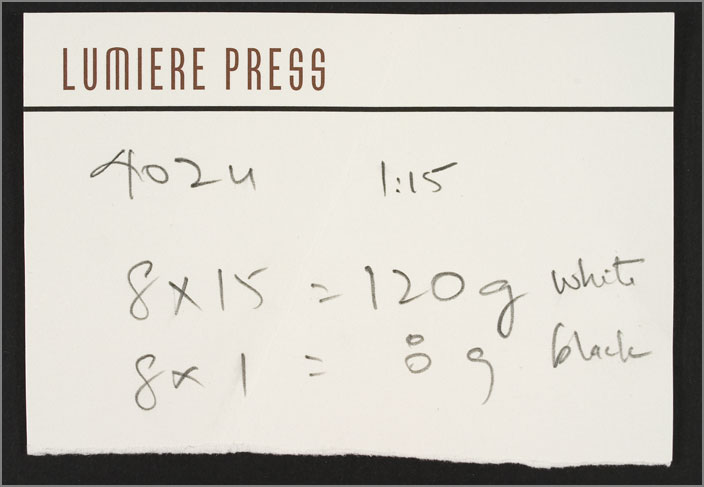 LUMIERE PRESS
402u 1:15
8 x 15 = 120 g white
8 x 1 = 8 g black